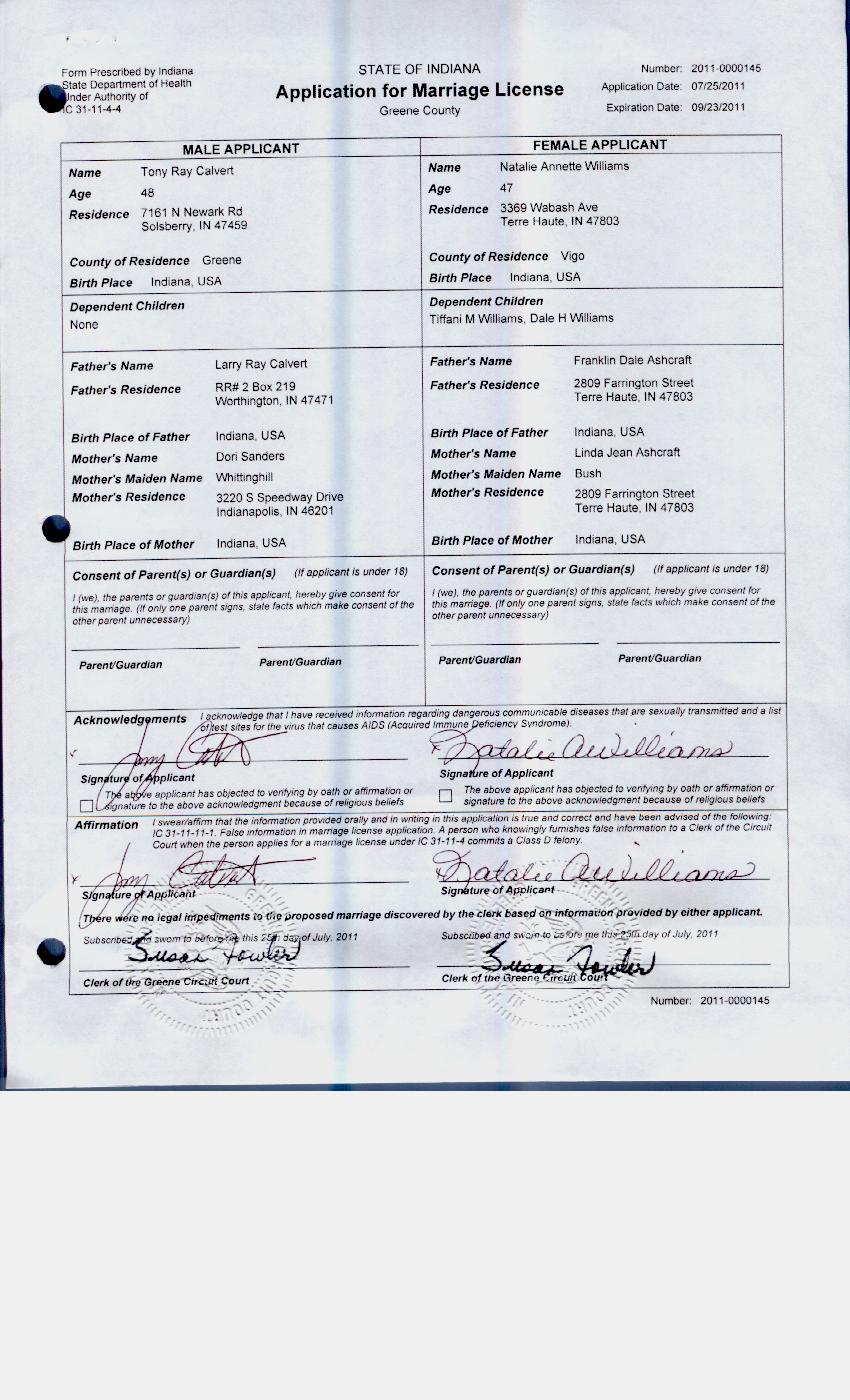 Form Prescribed by Indiana
State Department of Health
Under Authority of
IC 31-11-4-4
STATE OF INDIANA
Application for Marriage License
Greene County
Number: 2011-0000145
Application Date: 07/25/2011
Expiration Date: 09/23/2011
MALE APPLICANT
Name Tony Ray Calvert
Age 48
Residence 7161 N Newark Rd
Solsberry, IN 47459
County of Residence Greene
Birth Place Indiana, USA
Dependent Children
None
Father's Name Larry Ray Calvert
Father's Residence RR# 2 Box 219
Worthington, IN 47471
Birth Place of Father Indiana, USA
Mother's Name Dori Sanders
Mother's Maiden Name Whittinghill
Mother's Residence 3220 S Speedway Drive
Indianapolis, IN 46201
Birth Place of Mother Indiana, USA
Consent of Parent(s) or Guardian(s) (If applicant is under 18)
I (we), the parents or guardian(s) of this applicant, hereby give consent for
this marriage. (If only one parent signs, state facts which make consent of the
other parent unnecessary)
Parent/Guardian Parent/Guardian
FEMALE APPLICANT
Name Natalie Annette Williams
Age 47
Residence 3369 Wabash Ave
Terre Haute, IN 47803
County of Residence Vigo
Birth Place Indiana, USA
Dependent Children
Tiffani M Williams, Dale H Williams
Father's Name Franklin Dale Ashcraft
Father's Residence 2809 Farrington Street
Terre Haute, IN 47803
Birth Place of Father Indiana, USA
Mother's Name Linda Jean Ashcraft
Mother's Maiden Name Bush
Mother's Residence 2809 Farrington Street
Terre Haute, IN 47803
Birth Place of Mother Indiana, USA
Consent of Parent(s) or Guardian(s) (If applicant is under 18)
I (we), the parents or guardian(s) of this applicant, hereby give consent for
this marriage. (If only one parent signs, state facts which make consent of the
other parent unnecessary)
Parent/Guardian Parent/Guardian
Acknowledgements I acknowledge that I have received information regarding dangerous communicable diseases that are sexually transmitted and a list
of test sites for the virus that causes AIDS (Acquired Immune Deficiency Syndrome).
Tony Calvert Natalie A Williams
Signature of Applicant Signature of Applicant
The above applicant has objected to verifying by oath or affirmation or
signature to the above acknowledgment because of religious beliefs
The above applicant has objected to verifying by oath or affirmation or
signature to the above acknowledgment because of religious beliefs
Affirmation I swear/affirm that the information provided orally and in writing in this application is true and correct and have been advised of the following:
IC 31-11-11-1. False information in marriage license application. A person who knowingly furnishes false information to a Clerk of the Circuit
Court when the person applies for a marriage license under IC 31-11-4 commits a Class D felony.
Tony Calvert Natalie A Williams
Signature of Applicant Signature of Applicant
There were no legal impediments to the proposed marriage discovered by the clerk based on information provided by either applicant.
Subscribed and sworn to before me this 25th day of July, 2011 Subscribed and sworn to before me this 25th day of July, 2011
Susan Fowler Susan Fowler
Clerk of the Greene Circuit Court Clerk of the Greene Circuit Court
Number: 2011-0000145